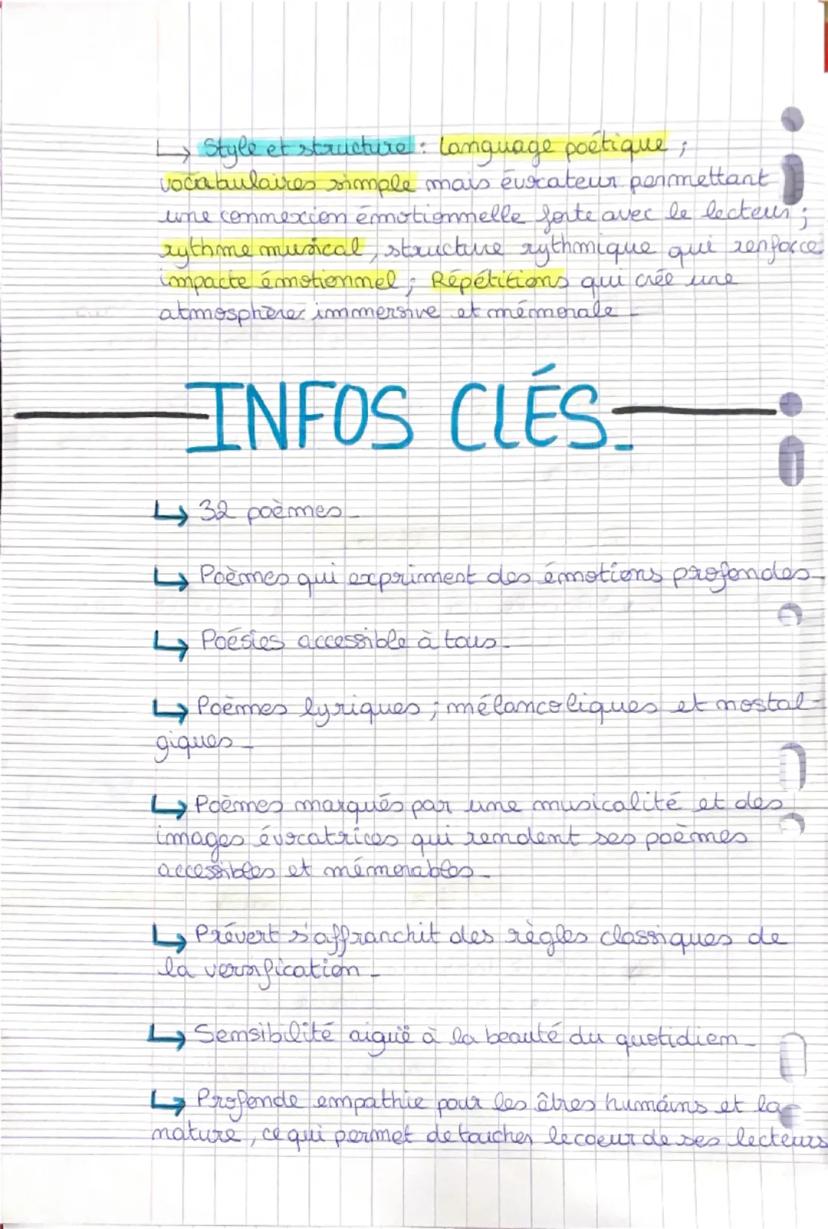 ↳ Style et structure : Language poétique ;
vocabulaires simple mais évocateur permettant
une connexion émotionnelle forte avec le lecteur ;
rythme musical, structure rythmique qui renforce
impacte émotionnel ; Répétitions qui crée une
atmosphère immersive et mémorale
INFOS CLÉS
↳ 32 poèmes
↳ Poèmes qui expriment des émotions profondes
↳ Poésies accessible à tous
↳ Poèmes lyriques ; mélancoliques et nostal-
giques
↳ Poèmes marqués par une musicalité et des
images évocatrices qui rendent ses poèmes
accessibles et mémorables
↳ Prévert s'affranchit des règles classiques de
la versification
↳ Sensibilité aiguë à la beauté du quotidien
↳ Profonde empathie pour les êtres humains et la
nature, ce qui permet de toucher le coeur de ses lecteurs